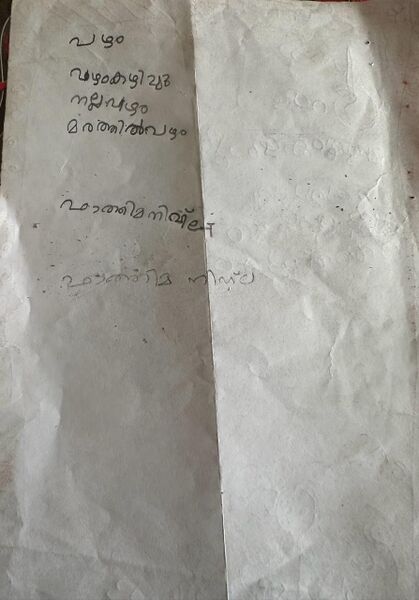 പഴം
പഴംകഴിവു
നല്ലപഴം
മരത്തിൽപഴം
ഫാത്തിമനിഷ്ല
ഫാത്തിമ നിഷ്ല